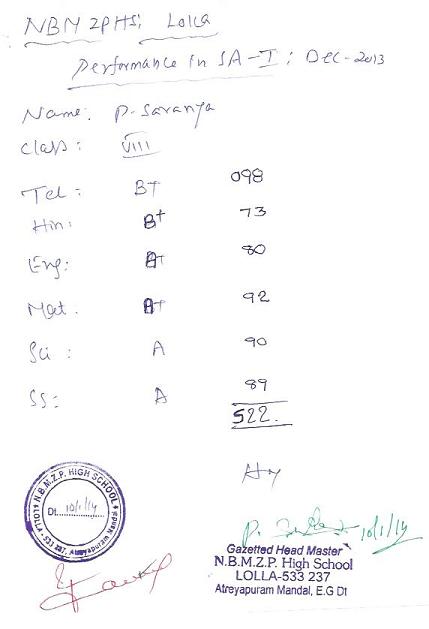 NBM ZPHS, Lolla
Performance in SA-I: Dec-2013
Name: P. Saranya
Class: VIII
Tel: B+ 098
Hin: B+ 73
Eng: 80
Mat: 92
Sci: A 90
SS: A 89
522.
N.B.M.Z.P. HIGH SCHOOL
Dt. 10/1/14
LOLLA-533 237, Atreyapuram Mandal
10/1/14
Gazetted Head Master
N.B.M.Z.P. High School
LOLLA-533 237
Atreyapuram Mandal, E.G Dt